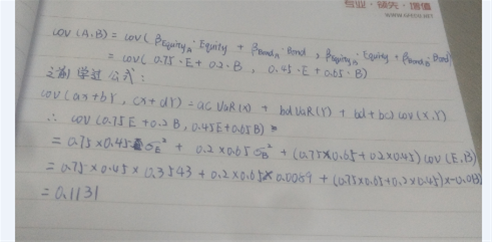 专业·领先·增值
www.gfedu.net
cov(A,B) = cov(βEquityA·Equity + βBondA·Bond, βEquityB·Equity + βBondB·Bond)
= cov(0.75·E + 0.2·B, 0.45·E + 0.65·B)
之前学过公式:
cov(ax+bY, cx+dY) = ac VaR(x) + bd VaR(Y) + (ad+bc) cov(x,Y)
∴ cov(0.75E+0.2B, 0.45E+0.65B) =
= 0.75×0.45 σE² + 0.2×0.65 σB² + (0.75×0.65+0.2×0.45) cov(E,B)
= 0.75×0.45×0.3543 + 0.2×0.65×0.0089 + (0.75×0.65+0.2×0.45)×
= 0.1131